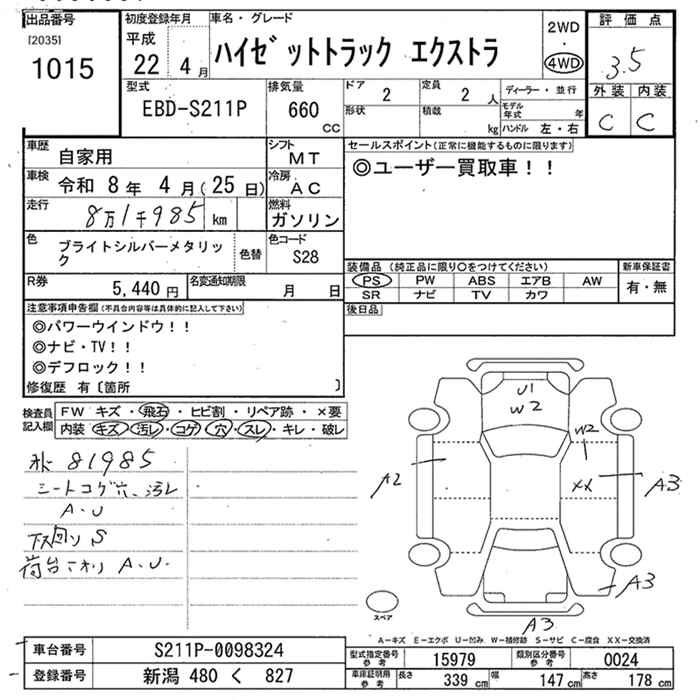 出品番号
[2035]
1015
初度登録年月
平成
22年 4月
車名・グレード
ハイゼットトラック エクストラ
2WD
・
4WD
評価点
3.5
外装 内装
C C
型式
EBD-S211P
排気量
660
CC
ドア
2
定員
2 人
形状
積載
kg
ディーラー・並行
モデル年式 年
ハンドル 左・右
車歴
自家用
シフト
MT
車検
令和 8年 4月(25日)
冷房
AC
走行
8万1千985 km
燃料
ガソリン
色
ブライトシルバーメタリック
色替
色コード
S28
R券
5,440円
名変通知期限
月 日
セールスポイント(正常に機能するものに限ります)
◎ユーザー買取車!!
装備品 (純正品に限り〇をつけてください)
PS PW ABS エアB AW
SR ナビ TV カワ
新車保証書
有・無
後日品
注意事項申告欄(不具合内容等は具体的に記入して下さい)
◎パワーウインドウ!!
◎ナビ・TV!!
◎デフロック!!
修復歴 有〔箇所 〕
検査員記入欄
FW キズ・飛石・ヒビ割・リペア跡・×要
内装 キズ・汚レ・コゲ・穴・スレ・キレ・破レ
81985
シートコゲ穴、汚レ
A.U
下回り S
荷台 A.U.
U1
W2
W2
A2
XX
A3
A3
A3
スペア
A-キズ E-エクボ U-凹み W-補修跡 S-サビ C-腐食 XX-交換済
車台番号
S211P-0098324
登録番号
新潟 480 く 827
型式指定番号 参考
15979
類別区分番号 参考
0024
車庫証明用 参考
長さ 339 cm 幅 147 cm 高さ 178 cm